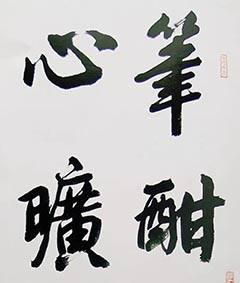 筆酣
心曠